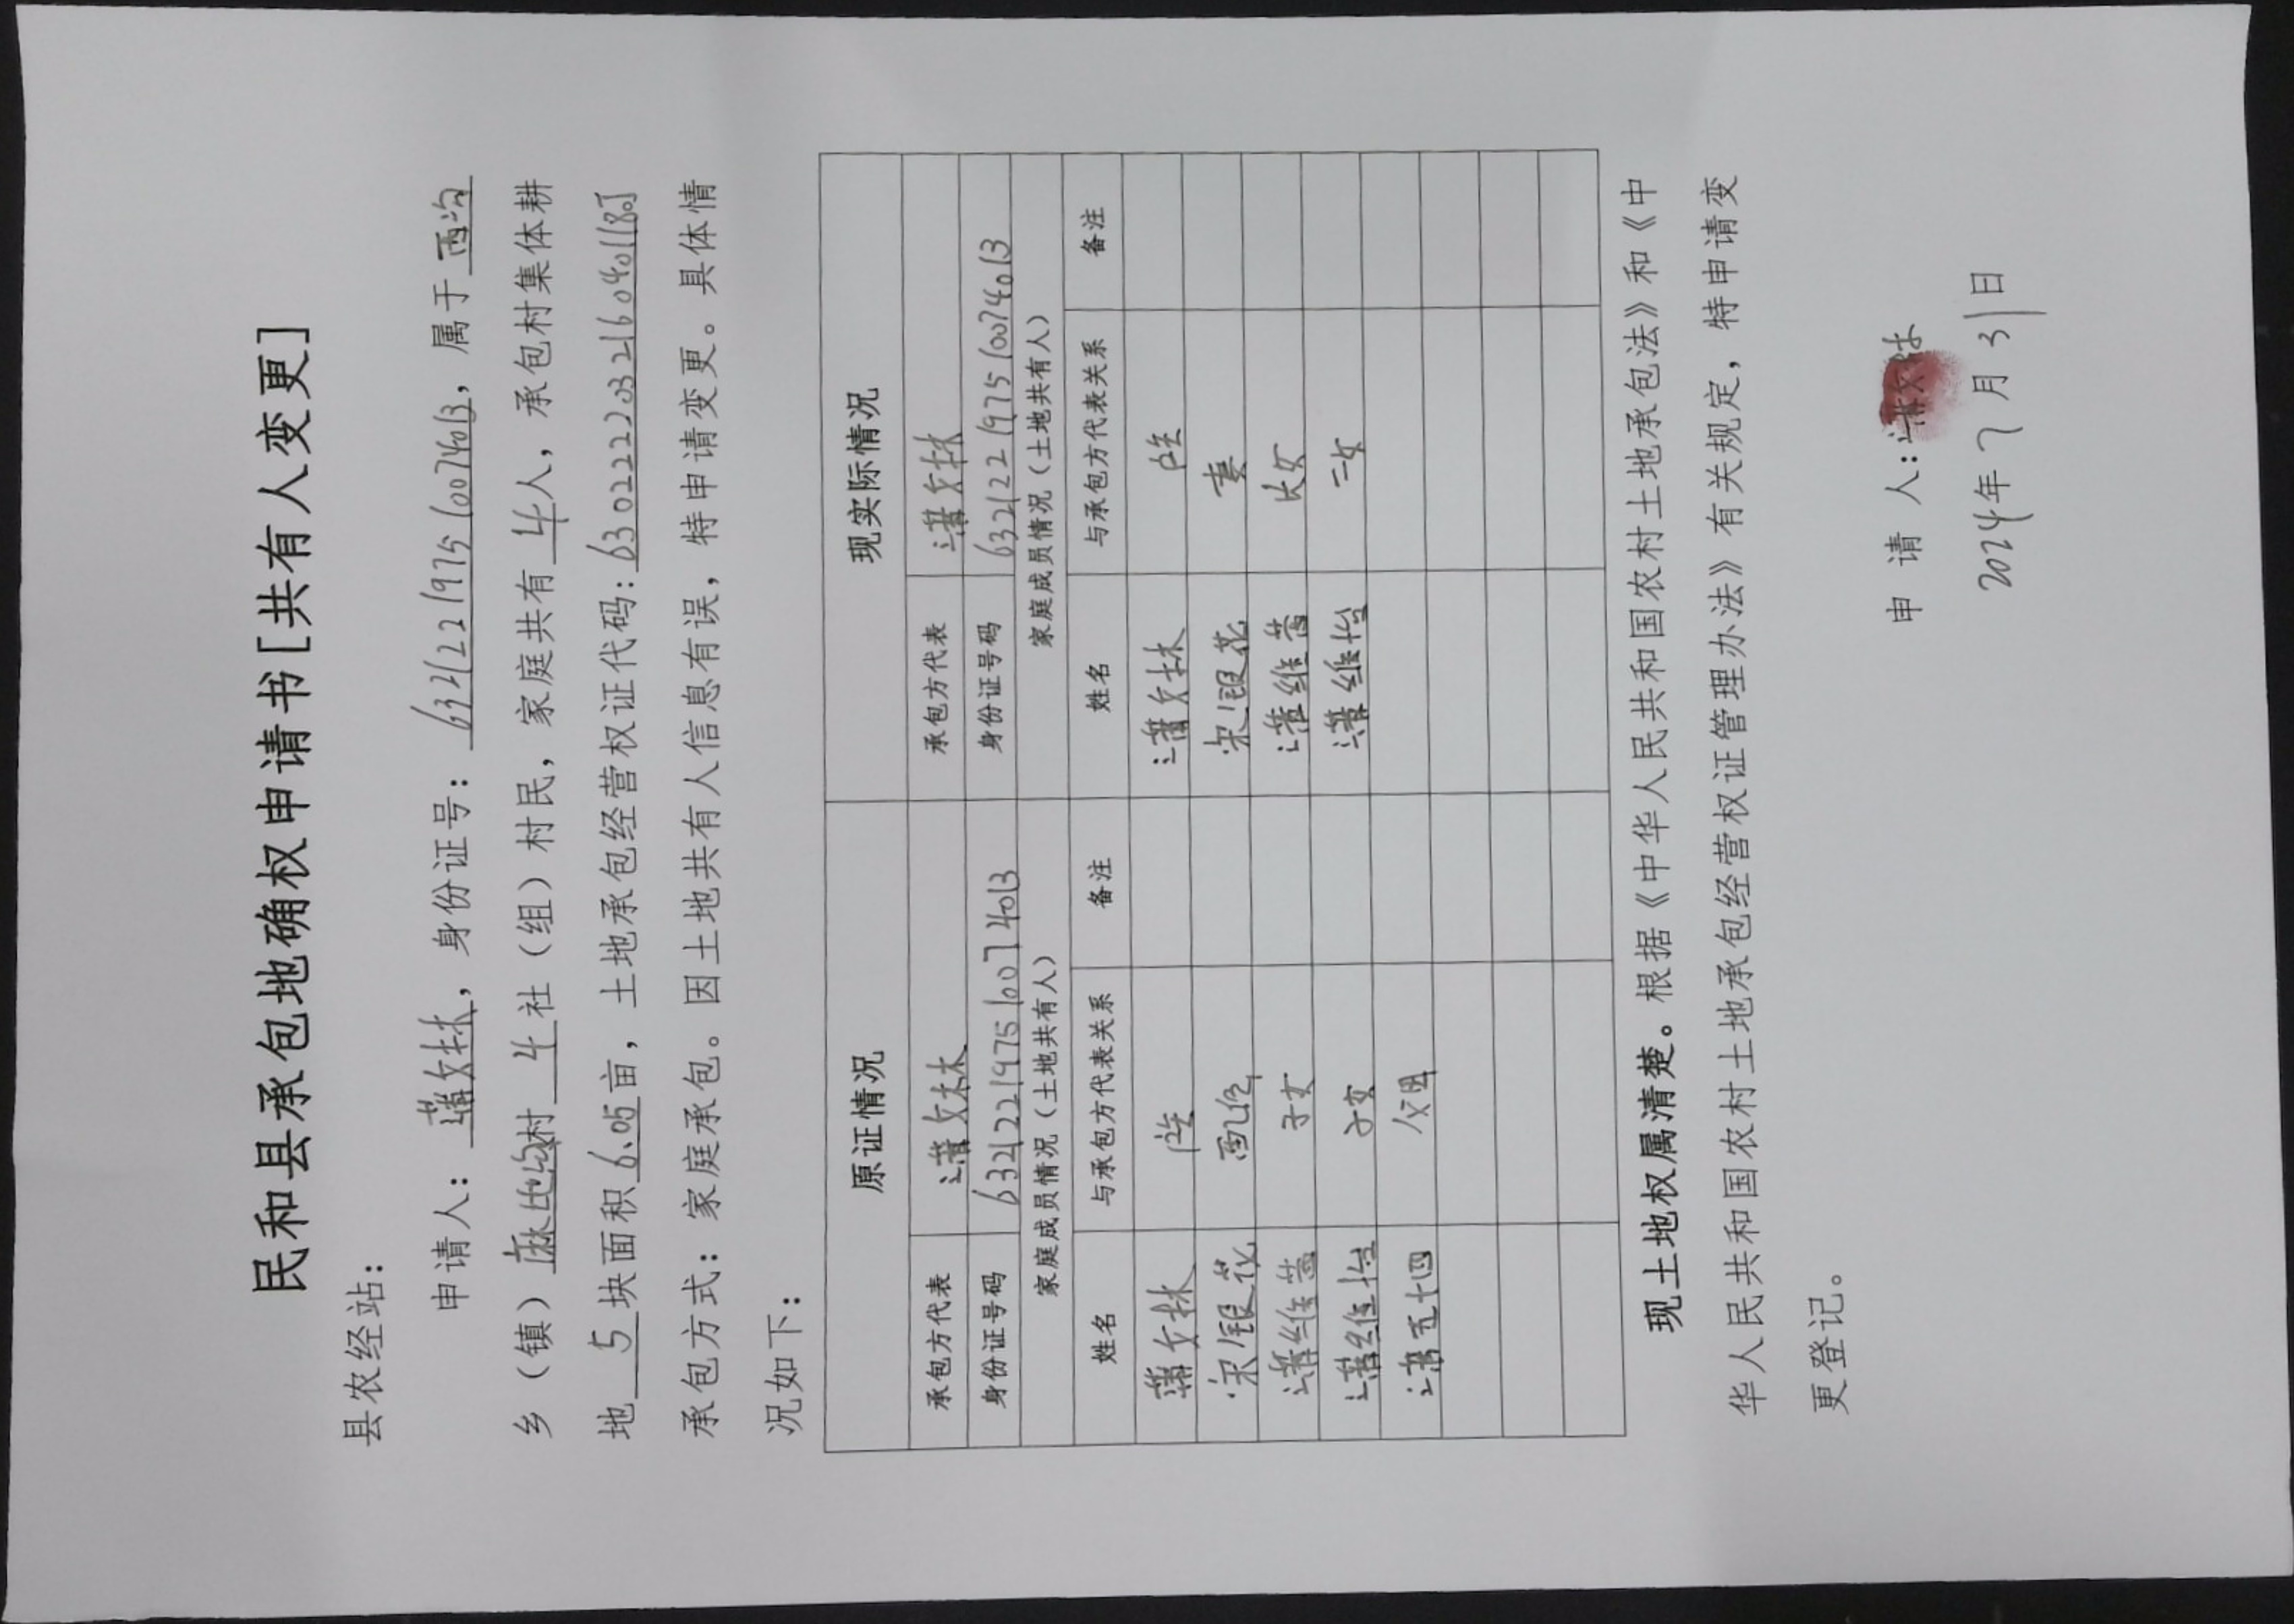 民和县承包地确权申请书[共有人变更]
县农经站：
申请人：蒲文林，身份证号：632122197510074013，属于西沟
乡（镇）麻地沟村 4 社（组）村民，家庭共有 4 人，承包村集体耕
地 5 块面积 6.05 亩，土地承包经营权证代码：630222203216040118J
承包方式：家庭承包。因土地共有人信息有误，特申请变更。具体情
况如下：
原证情况 现实际情况
承包方代表 蒲文林 承包方代表 蒲文林
身份证号码 632122197510074013 身份证号码 632122197510074013
家庭成员情况（土地共有人） 家庭成员情况（土地共有人）
姓名 与承包方代表关系 备注 姓名 与承包方代表关系 备注
蒲文林 蒲文林
宋银花 配偶 宋银花 妻
蒲维 子女 蒲维 长女
蒲维怡 子女 蒲维怡 二女
蒲五十四 父母
现土地权属清楚。根据《中华人民共和国农村土地承包法》和《中
华人民共和国农村土地承包经营权证管理办法》有关规定，特申请变
更登记。
申 请 人：蒲文林
2024年 7 月 31 日